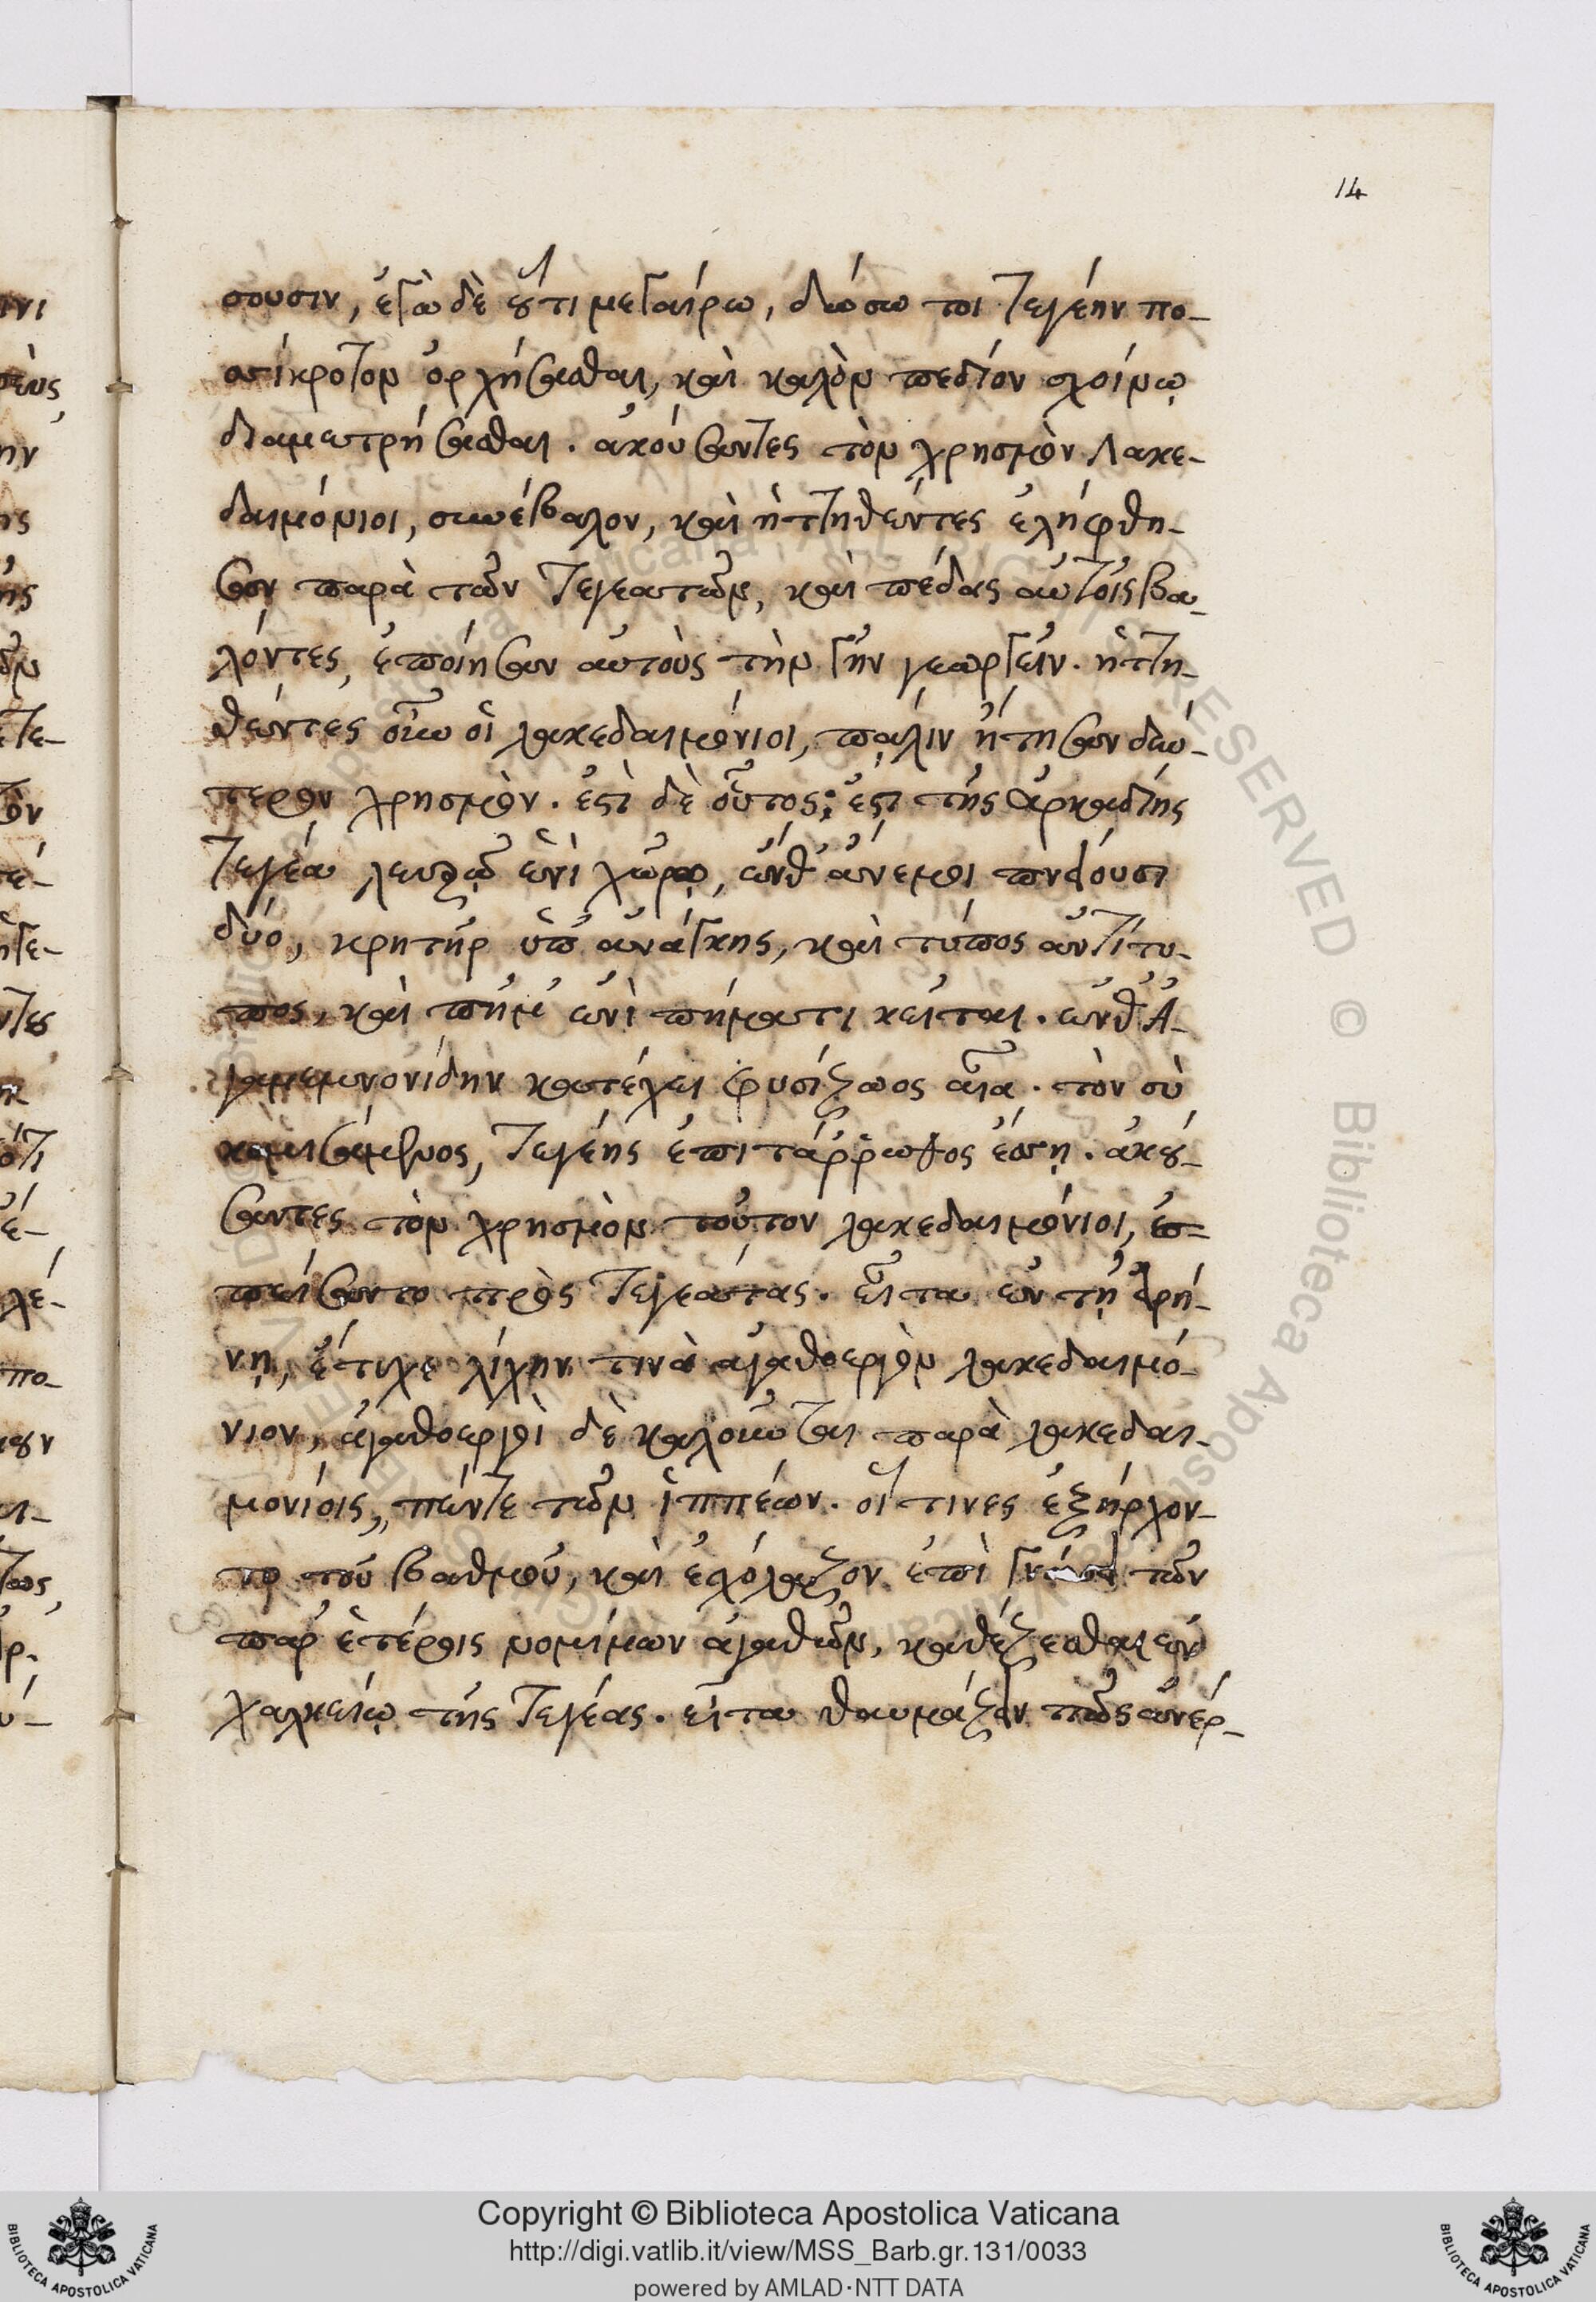 14
σουσιν, ἐγὼ δὲ οὔτι μεγαίρω, δώσω τοι Τεγέην πο-
σίκροτον ὀρχήσασθαι, καὶ καλὸν πεδίον σχοίνῳ
διαμετρήσασθαι. ἀκούσαντες τὸν χρησμὸν Λακε-
δαιμόνιοι, συνέβαλον, καὶ ἡττηθέντες ἐλήφθη-
σαν παρὰ τῶν Τεγεατῶν, καὶ πέδας αὐτοῖς βα-
λόντες, ἐποίησαν αὐτοὺς τὴν γῆν γεωργεῖν. ἡττη-
θέντες οὖν οἱ λακεδαιμόνιοι, πάλιν ᾔτησαν δεύ-
τερον χρησμόν. ἐστὶ δὲ οὗτος; ἔστι τῆς ἀρκαδίης
Τεγέα λευρῷ ἐνὶ χώρῳ, ἔνθ' ἄνεμοι πνείουσι
δύο, κρητὴρ ὑπ' ἀνάγκης, καὶ τύπος ἀντίτυ-
πος, καὶ πῆμ' ἐνὶ πήματι κεῖται. ἔνθ' Ἀ-
γαμεμνονίδην κατέχει φυσίζωος αἶα. τὸν σὺ
κομισάμενος, Τεγέης ἐπιτάρροθος ἔσῃ. ἀκού-
σαντες τὸν χρησμὸν τοῦτον λακεδαιμόνιοι, ἐσ-
πείσαντο πρὸς Τεγεάτας. εἶτα ἐν τῇ εἰρή-
νῃ, ἔτυχε λίχην τινὰ ἀγαθοεργὸν λακεδαιμό-
νιον, ἀγαθοεργοὶ δὲ καλοῦνται παρὰ λακεδαι-
μονίοις, πέντε τῶν ἱππέων. οἵτινες ἐξήρχον-
το τοῦ βαθμοῦ, καὶ ἐσχόλαζον ἐπὶ γνώσει τῶν
παρ' ἑτέροις νομίμων ἀγαθῶν, καθέζεσθαι ἐν
χαλκείῳ τῆς Τεγέας. εἶτα θαυμάζειν πῶς ἀνέρ-
Copyright © Biblioteca Apostolica Vaticana
http://digi.vatlib.it/view/MSS_Barb.gr.131/0033
powered by AMLAD·NTT DATA